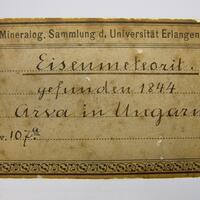 Mineralog. Sammlung d. Universität Erlangen
Eisenmeteorit.
gefunden 1844
Arva in Ungarn
107